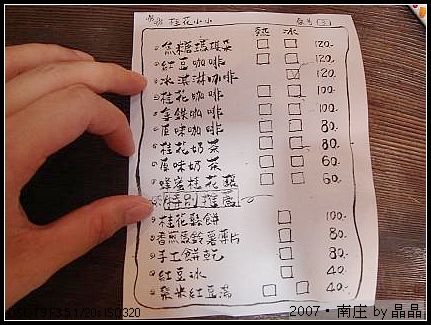 桂花小小
熱 冰
焦糖瑪琪朵 □ □ 120.
紅豆咖啡 □ □ 120.
冰淇淋咖啡 ☑ 120.
桂花咖啡 □ □ 100.
拿鐵咖啡 □ □ 100.
原味咖啡 □ □ 80.
桂花奶茶 □ □ 80.
原味奶茶 □ □ 60.
蜂蜜桂花釀 □ □ 60.
特別推薦
桂花鬆餅 □ 100.
香煎馬鈴薯薄片 □ 80.
手工餅乾 □ 80.
紅豆冰 □ 40.
紫米紅豆湯 □ □ 40.
2007·南庄 by 晶晶